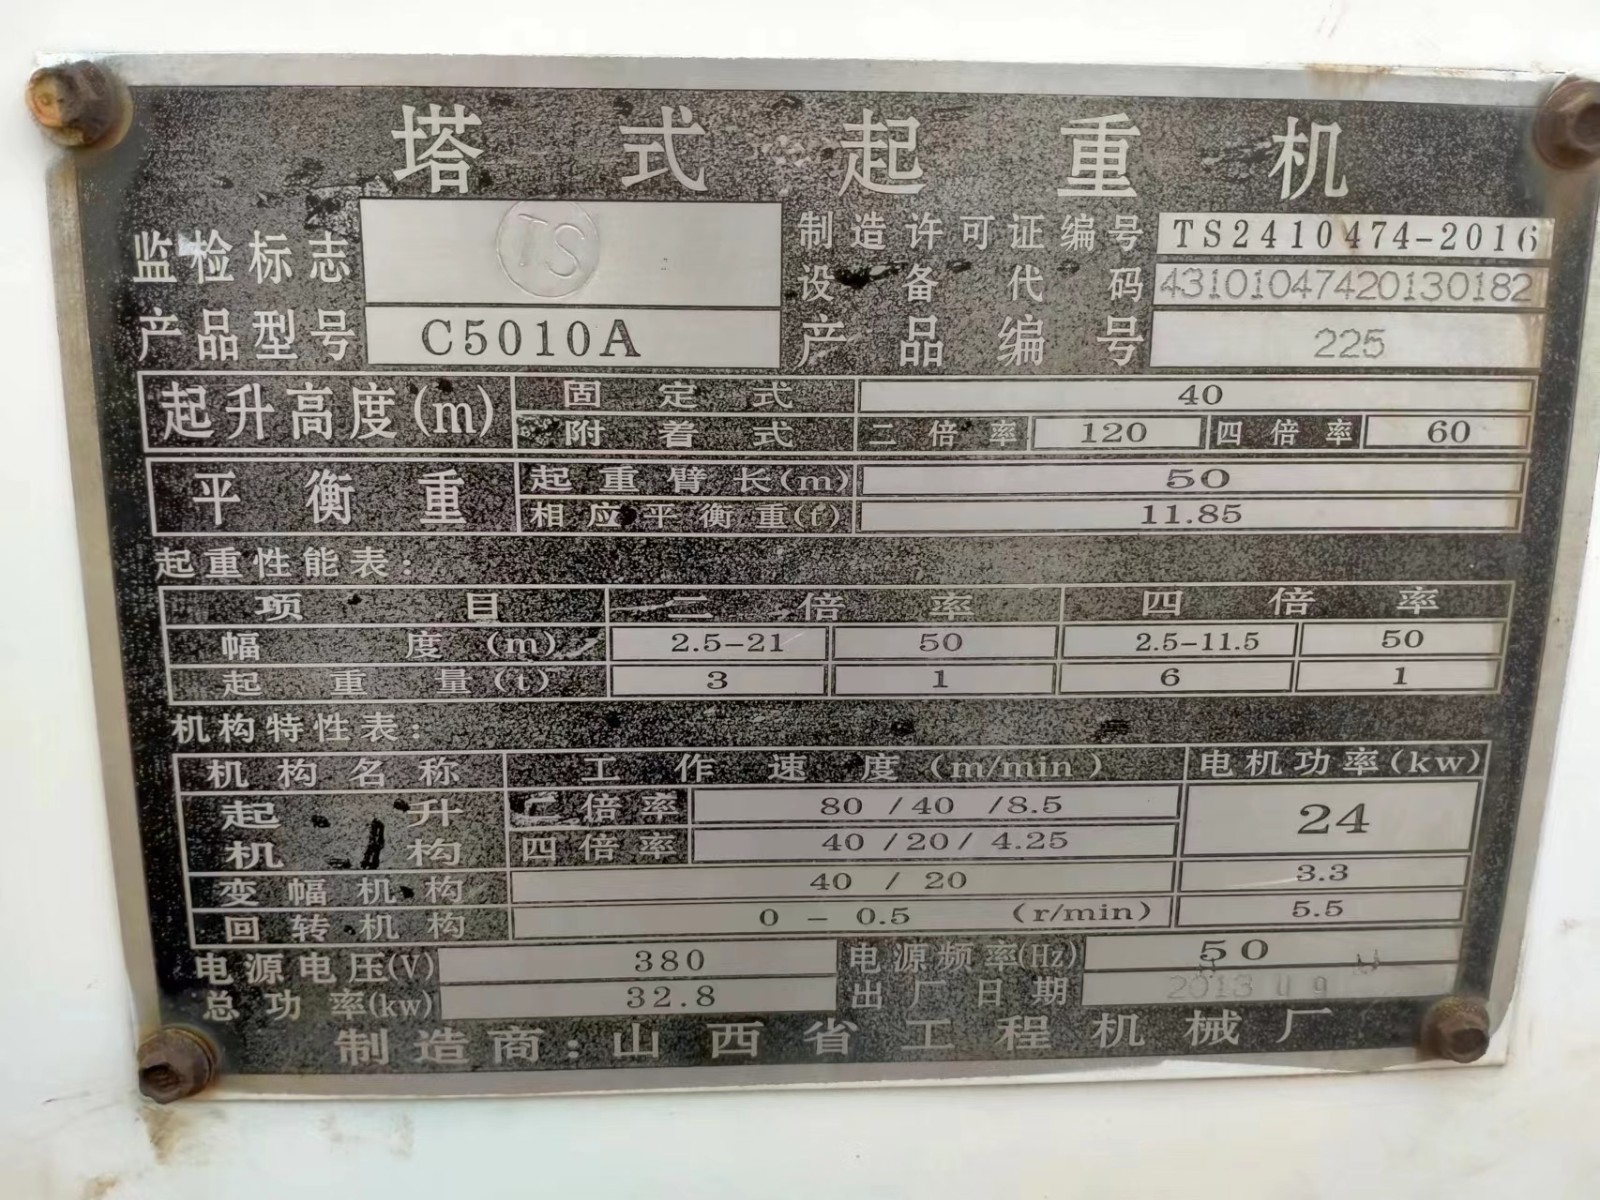 塔式起重机
监检标志 TS 制造许可证编号 TS2410474-2016
设备代码 43101047420130182
产品型号 C5010A 产品编号 225
起升高度(m) 固定式 40
附着式 二倍率 120 四倍率 60
平衡重 起重臂长(m) 50
相应平衡重(t) 11.85
起重性能表:
项目 二倍率 四倍率
幅度(m) 2.5-21 50 2.5-11.5 50
起重量(t) 3 1 6 1
机构特性表:
机构名称 工作速度(m/min) 电机功率(kw)
起升机构 二倍率 80/40/8.5 24
四倍率 40/20/4.25
变幅机构 40/20 3.3
回转机构 0-0.5 (r/min) 5.5
电源电压(V) 380 电源频率(Hz) 50
总功率(kw) 32.8 出厂日期 2013
制造商:山西省工程机械厂